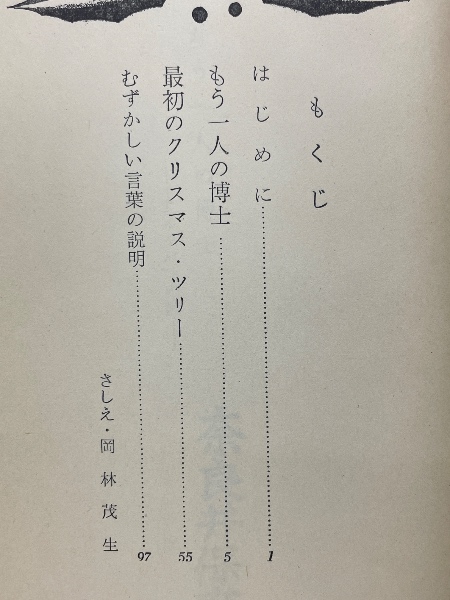 もくじ
はじめに……1
もう一人の博士……5
最初のクリスマス・ツリー……55
むずかしい言葉の説明……97
さしえ・岡林茂生